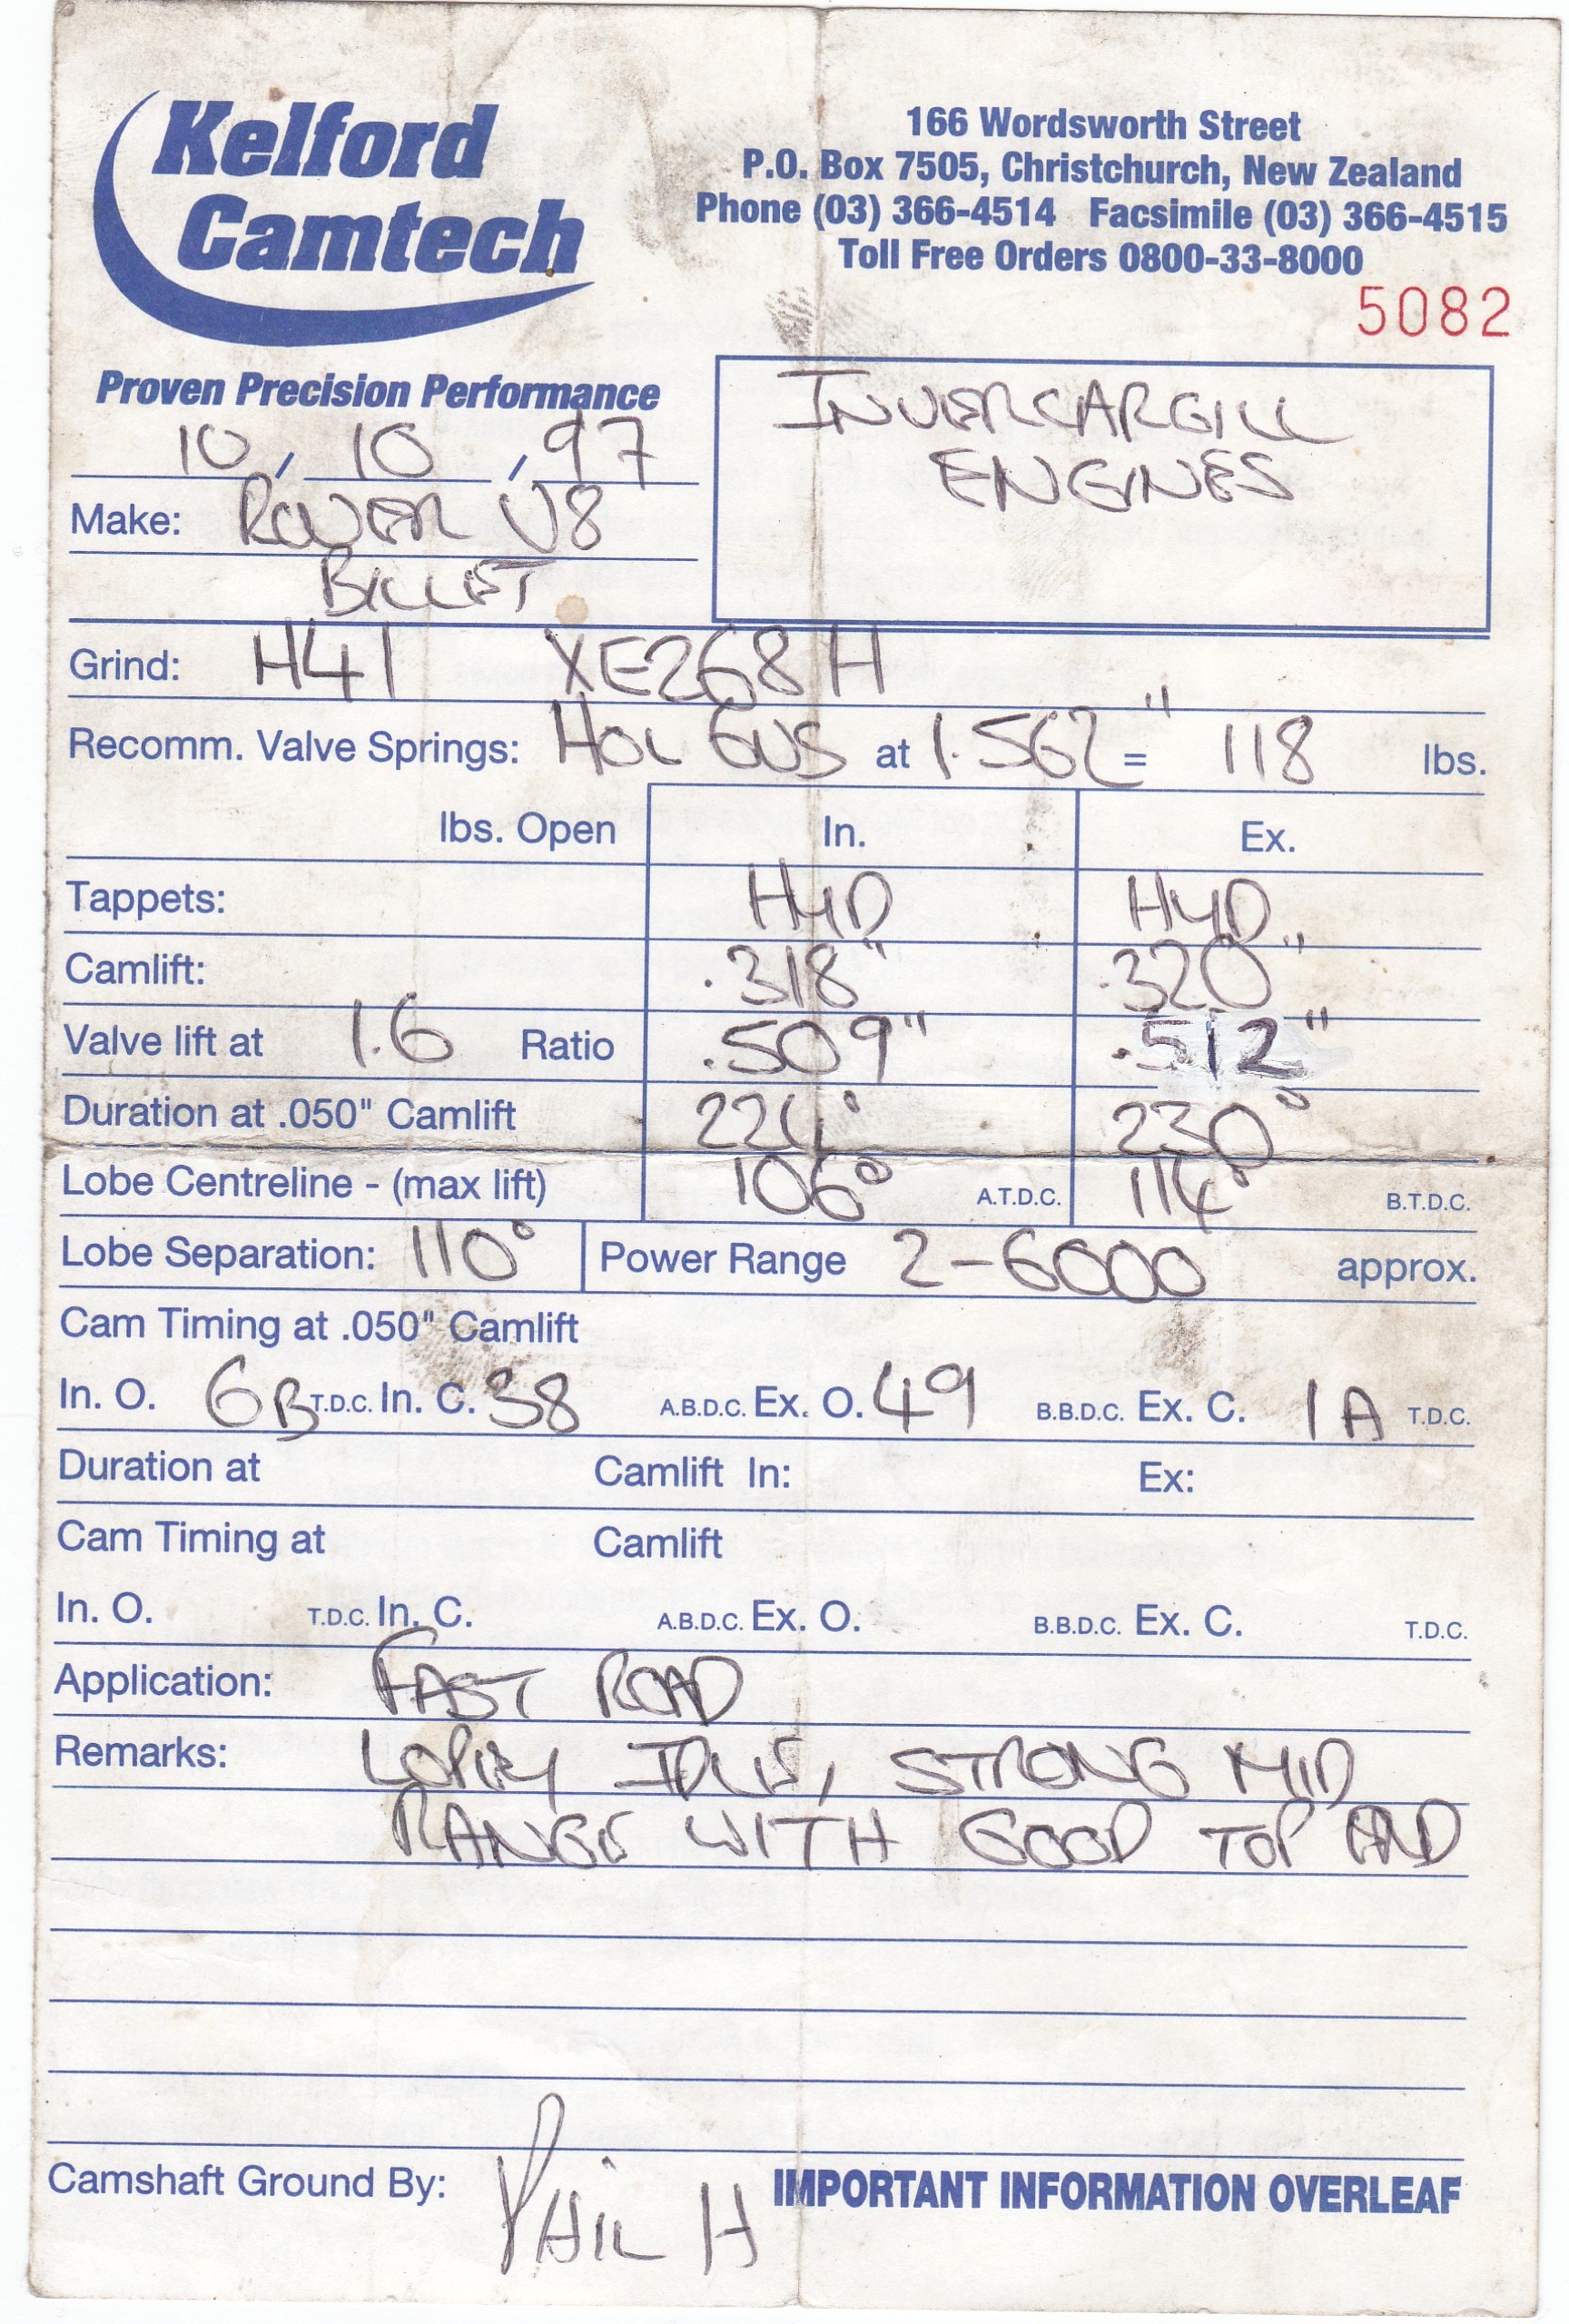 Kelford
Camtech
Proven Precision Performance
166 Wordsworth Street
P.O. Box 7505, Christchurch, New Zealand
Phone (03) 366-4514 Facsimile (03) 366-4515
Toll Free Orders 0800-33-8000
5082
INVERCARGILL
ENGINES
10 / 10 / 97
Make: ROVER V8
BILLET
Grind: H41 XE268H
Recomm. Valve Springs: HOL at 1.562" = 118 lbs.
lbs. Open In. Ex.
Tappets: HYD HYD
Camlift: .318" .320"
Valve lift at 1.6 Ratio .509" .512"
Duration at .050" Camlift 224° 230°
Lobe Centreline - (max lift) 106° A.T.D.C. 114° B.T.D.C.
Lobe Separation: 110° Power Range 2-6000 approx.
Cam Timing at .050" Camlift
In. O. 6 B T.D.C. In. C. 38 A.B.D.C. Ex. O. 49 B.B.D.C. Ex. C. 1 A T.D.C.
Duration at Camlift In: Ex:
Cam Timing at Camlift
In. O. T.D.C. In. C. A.B.D.C. Ex. O. B.B.D.C. Ex. C. T.D.C.
Application: FAST ROAD
Remarks: LOPEY IDLE, STRONG MID
RANGE WITH GOOD TOP END
Camshaft Ground By: PHIL H IMPORTANT INFORMATION OVERLEAF